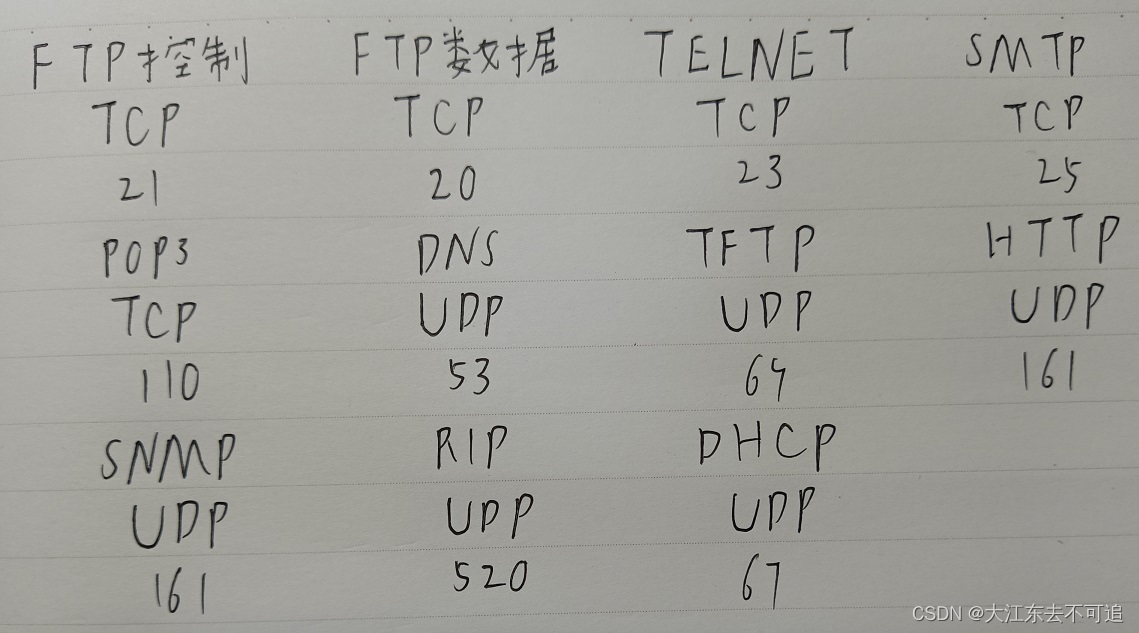 FTP控制 FTP数据 TELNET SMTP
TCP TCP TCP TCP
21 20 23 25
POP3 DNS TFTP HTTP
TCP UDP UDP UDP
110 53 69 161
SNMP RIP DHCP
UDP UDP UDP
161 520 67
CSDN @大江东去不可追